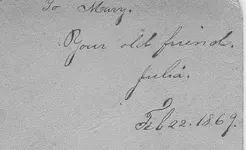 To Mary.
Your old friend.
Julia.
Feb 22. 1869.